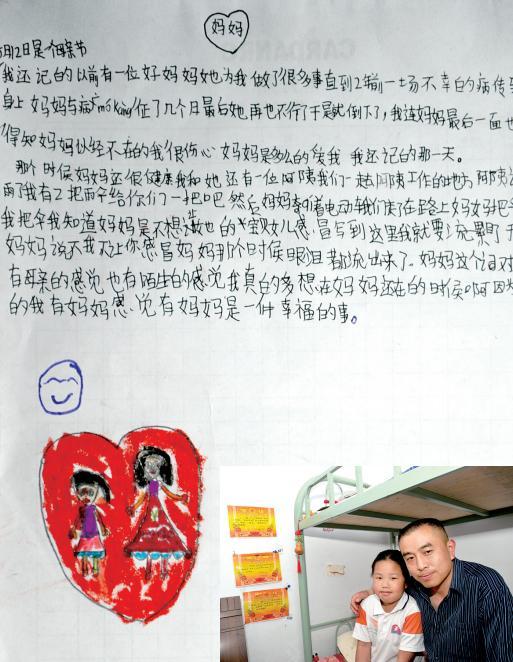 妈妈
月12日是母亲节
我还记的以前有一位好妈妈她为我做了很多事直到2年前一场不幸的病传到
身上妈妈与病 king住了几个月最后她再也不行了于是就倒下了,我连妈妈最后一面也
得知妈妈以经不在的我很伤心妈妈是多么的爱我我还记的那一天。
那个时候妈妈还很健康我和她还有一位阿姨我们一起去阿姨工作的地方阿姨
雨了我有2把雨伞给你们一把吧然后妈妈着电动车我们来了在路上妈妈把伞
我把伞我知道妈妈是不想她的宝贝女儿感冒写到这里我就要流泪了
妈妈说不我不让你感冒妈妈那个时候眼泪都流出来了。妈妈这个词对
有母亲的感觉也有陌生的感觉我真的多想在妈妈还在的时侯啊因为
的我有妈妈感觉有妈妈是一件幸福的事。